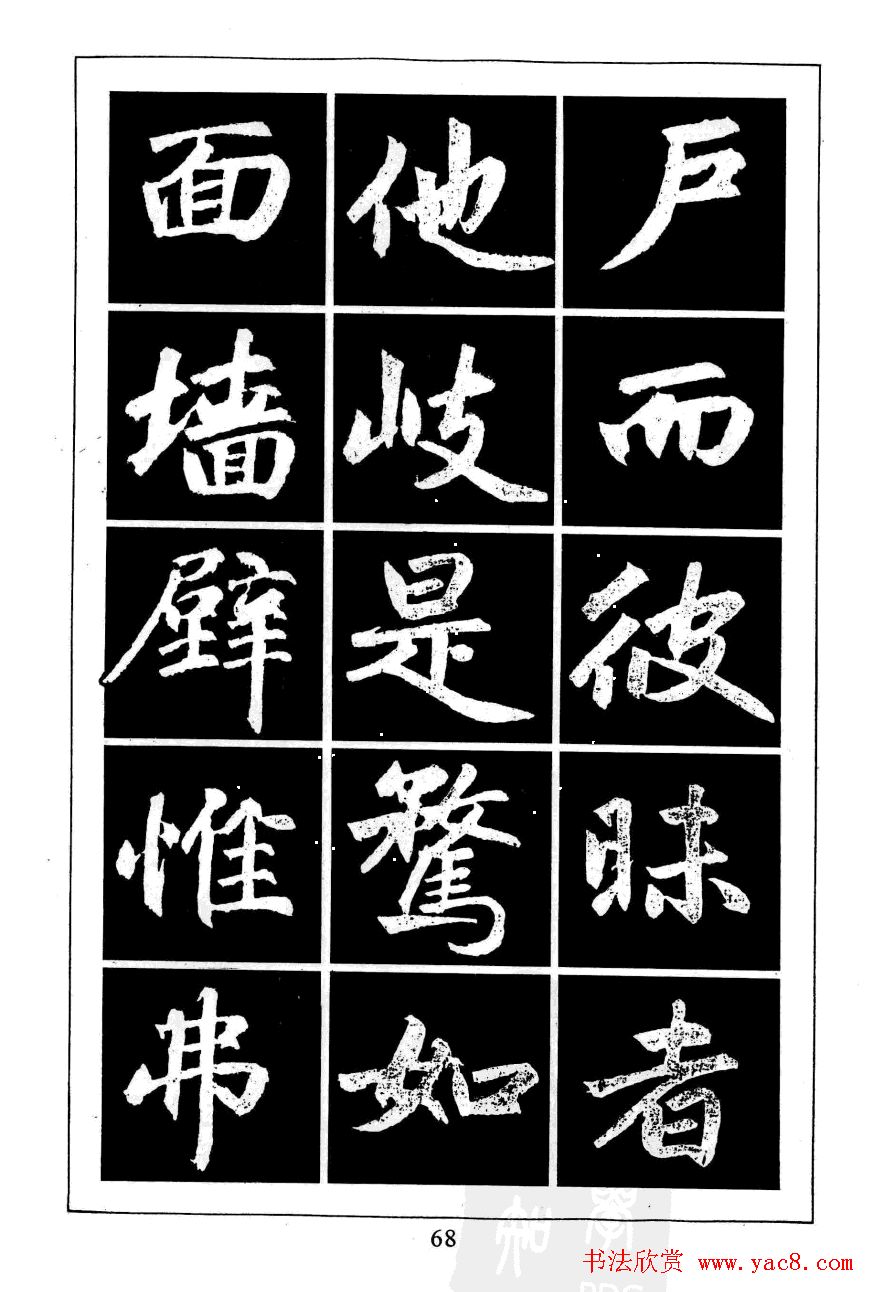 户而彼昧者
他岐是鹜如
面墙壁惟弗
68
书法欣赏 www.yac8.com